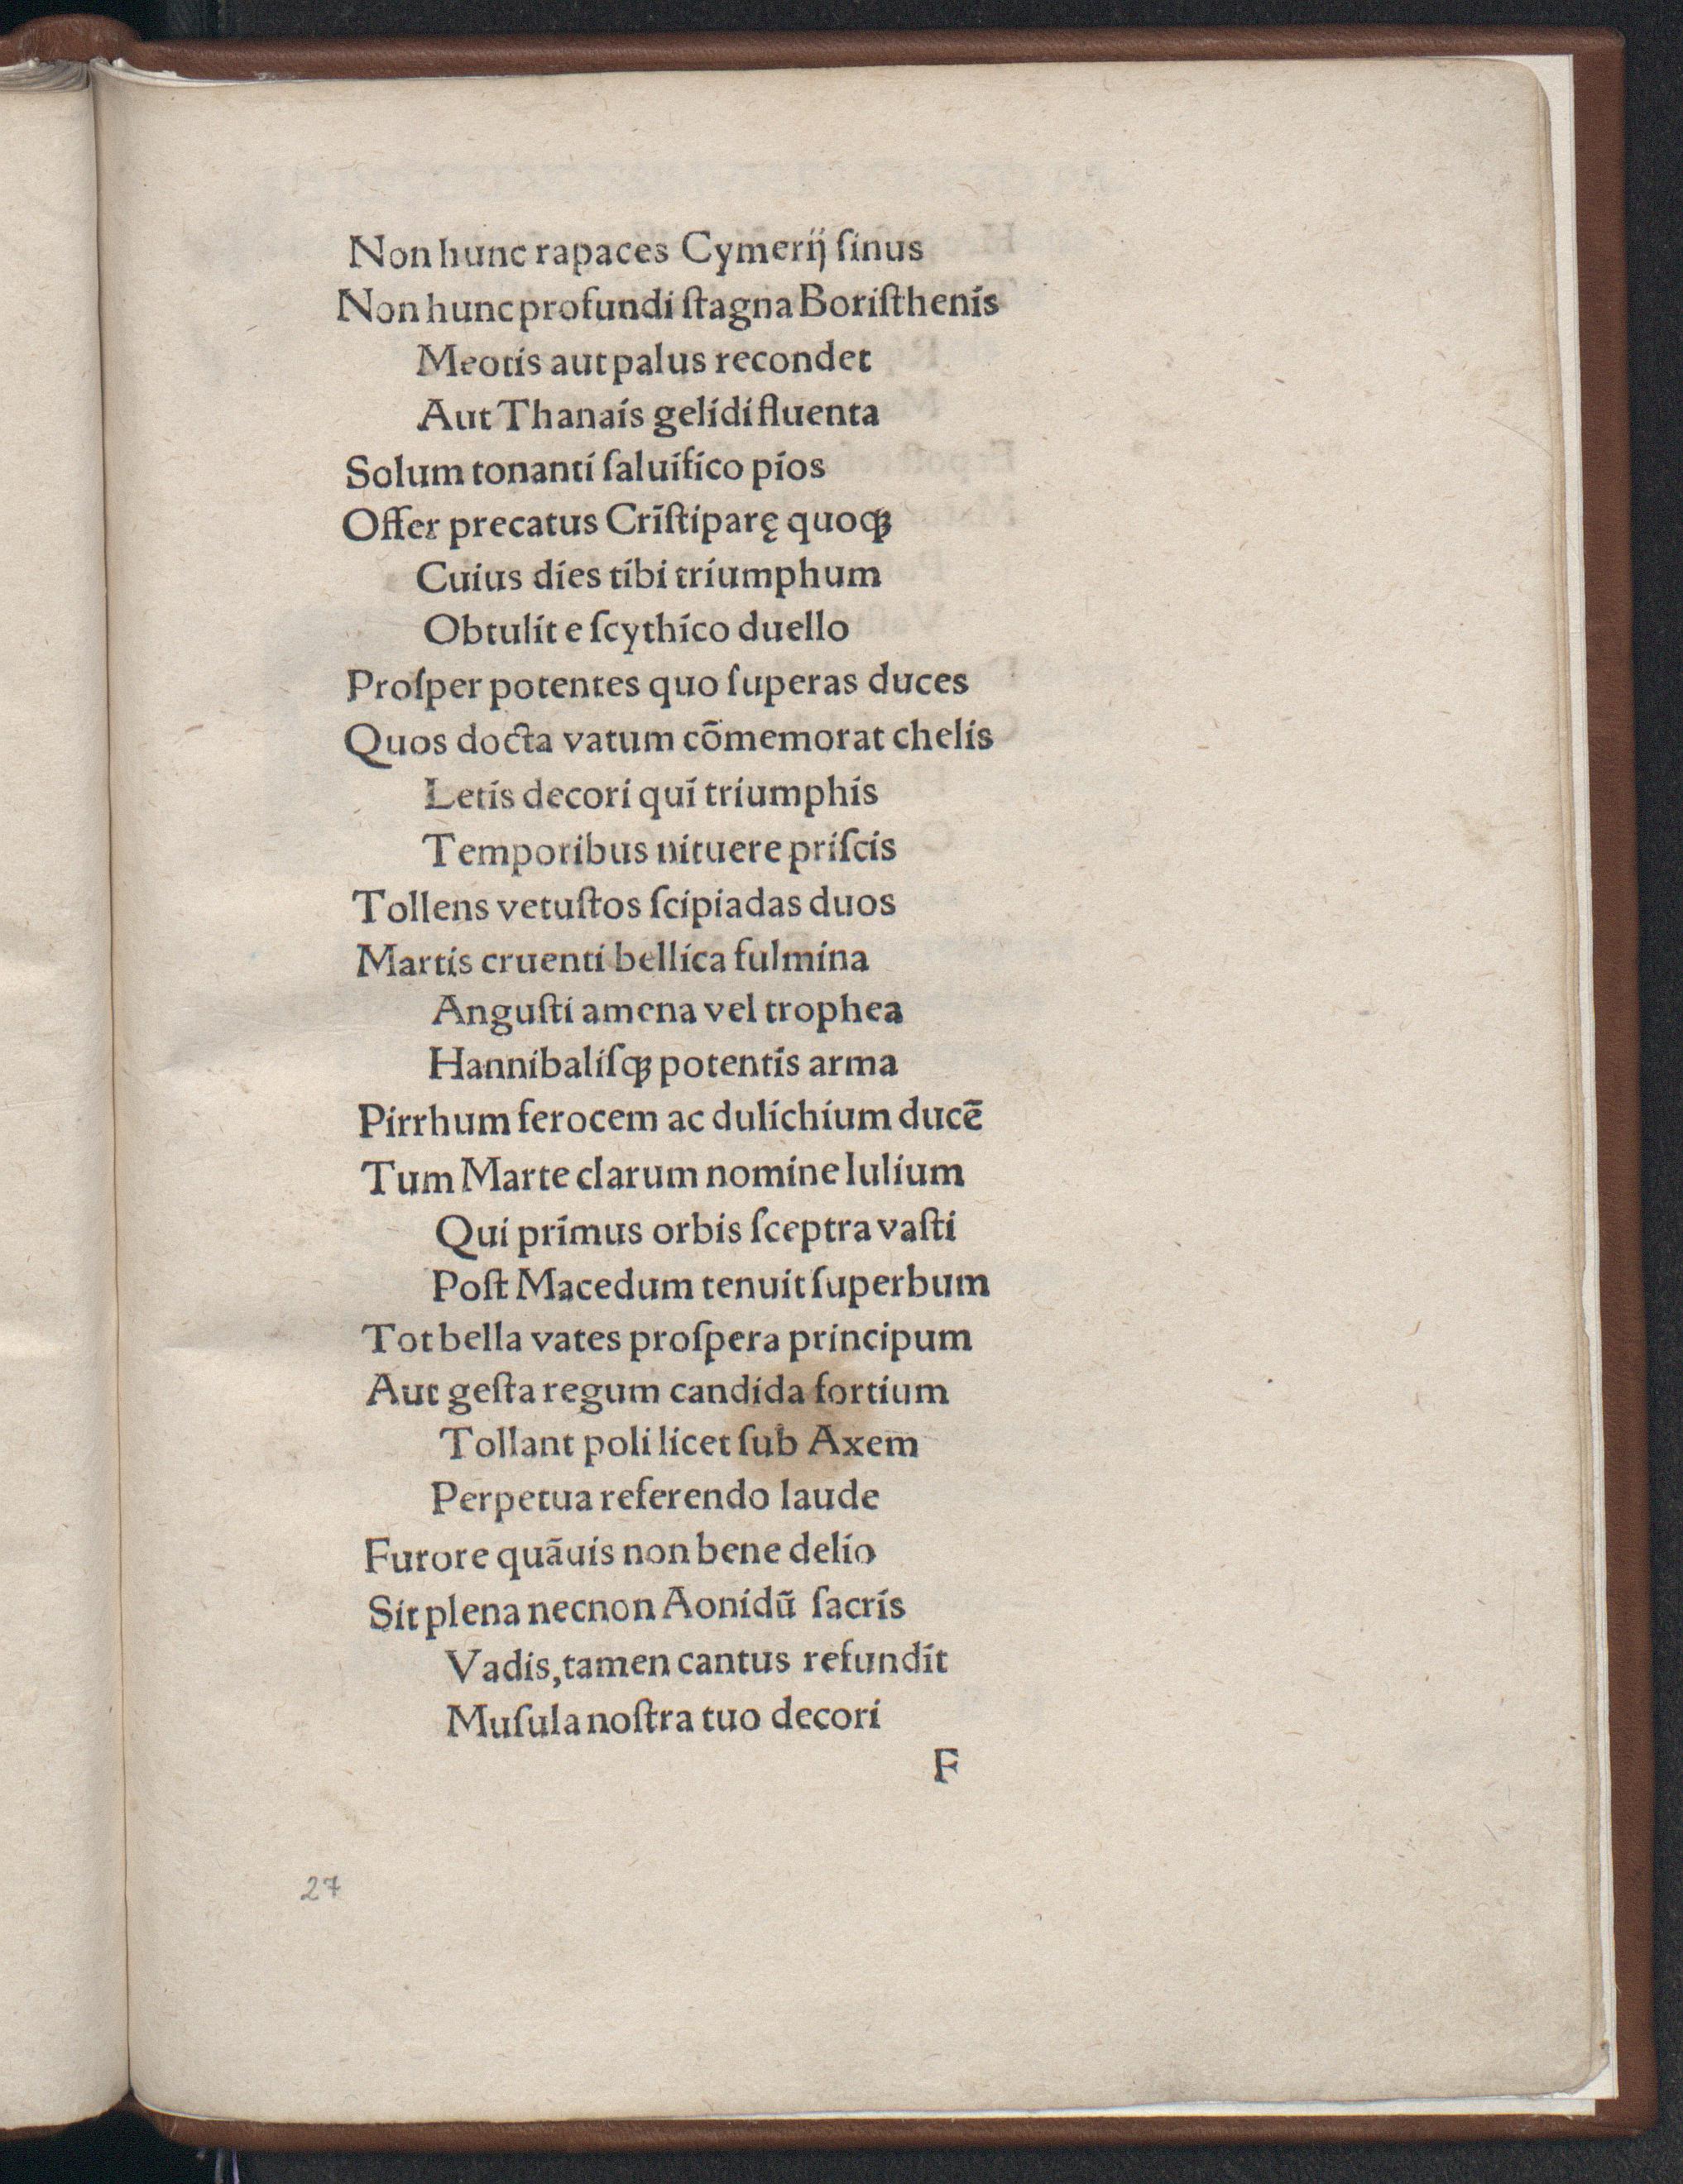 Non hunc rapaces Cymerij ſinus
Non hunc profundi ſtagna Boriſthenis
Meotis aut palus recondet
Aut Thanais gelidi fluenta
Solum tonanti ſaluifico pios
Offer precatus Criſtiparę quoqꝫ
Cuius dies tibi triumphum
Obtulit e ſcythico duello
Proſper potentes quo ſuperas duces
Quos docta vatum cōmemorat chelis
Letis decori qui triumphis
Temporibus nituere priſcis
Tollens vetuſtos ſcipiadas duos
Martis cruenti bellica fulmina
Anguſti amena vel trophea
Hannibaliſqꝫ potentis arma
Pirrhum ferocem ac dulichium ducē
Tum Marte clarum nomine Iulium
Qui primus orbis ſceptra vaſti
Poſt Macedum tenuit ſuperbum
Tot bella vates proſpera principum
Aut geſta regum candida fortium
Tollant poli licet ſub Axem
Perpetua referendo laude
Furore quāuis non bene delio
Sit plena necnon Aonidū ſacris
Vadis, tamen cantus refundit
Muſula noſtra tuo decori
F
27